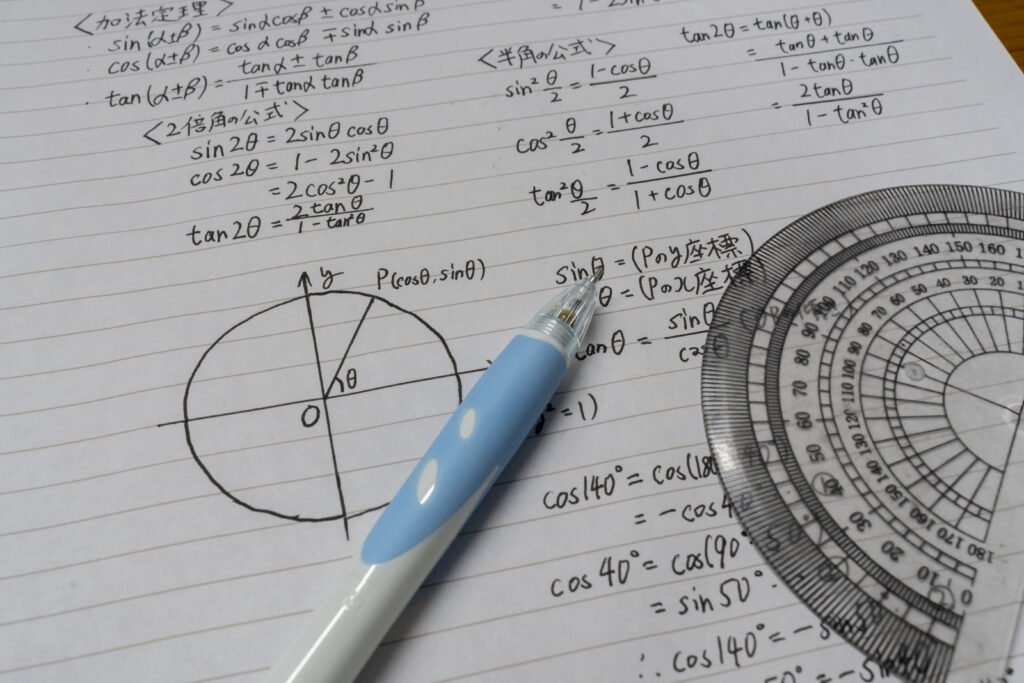 <加法定理>
・sin(α±β)=sinαcosβ±cosαsinβ
・cos(α±β)=cosαcosβ∓sinα sinβ
・tan(α±β)=(tanα±tanβ)/(1∓tanαtanβ)
<2倍角の公式>
sin2θ=2sinθcosθ
cos2θ=1-2sin²θ
=2cos²θ-1
tan2θ=2tanθ/(1-tan²θ)
<半角の公式>
sin²θ/2=(1-cosθ)/2
cos²θ/2=(1+cosθ)/2
tan²θ/2=(1-cosθ)/(1+cosθ)
tan2θ=tan(θ+θ)
=(tanθ+tanθ)/(1-tanθ・tanθ)
=2tanθ/(1-tan²θ)
y
P(cosθ,sinθ)
θ
O
sinθ=(Pのy座標)
θ=(Pのx座標)
tanθ=sinθ/
=1)
cos140°=cos(180
=-cos4
cos40°=cos(90°
=sin50°
∴cos140°=-sin
120 130 140 150 160
110 100 90 80 70 60 50 40 30 20 10 0
60 50 40 30 20
70 80 90 100 110 120 130 140 150 160 170 180